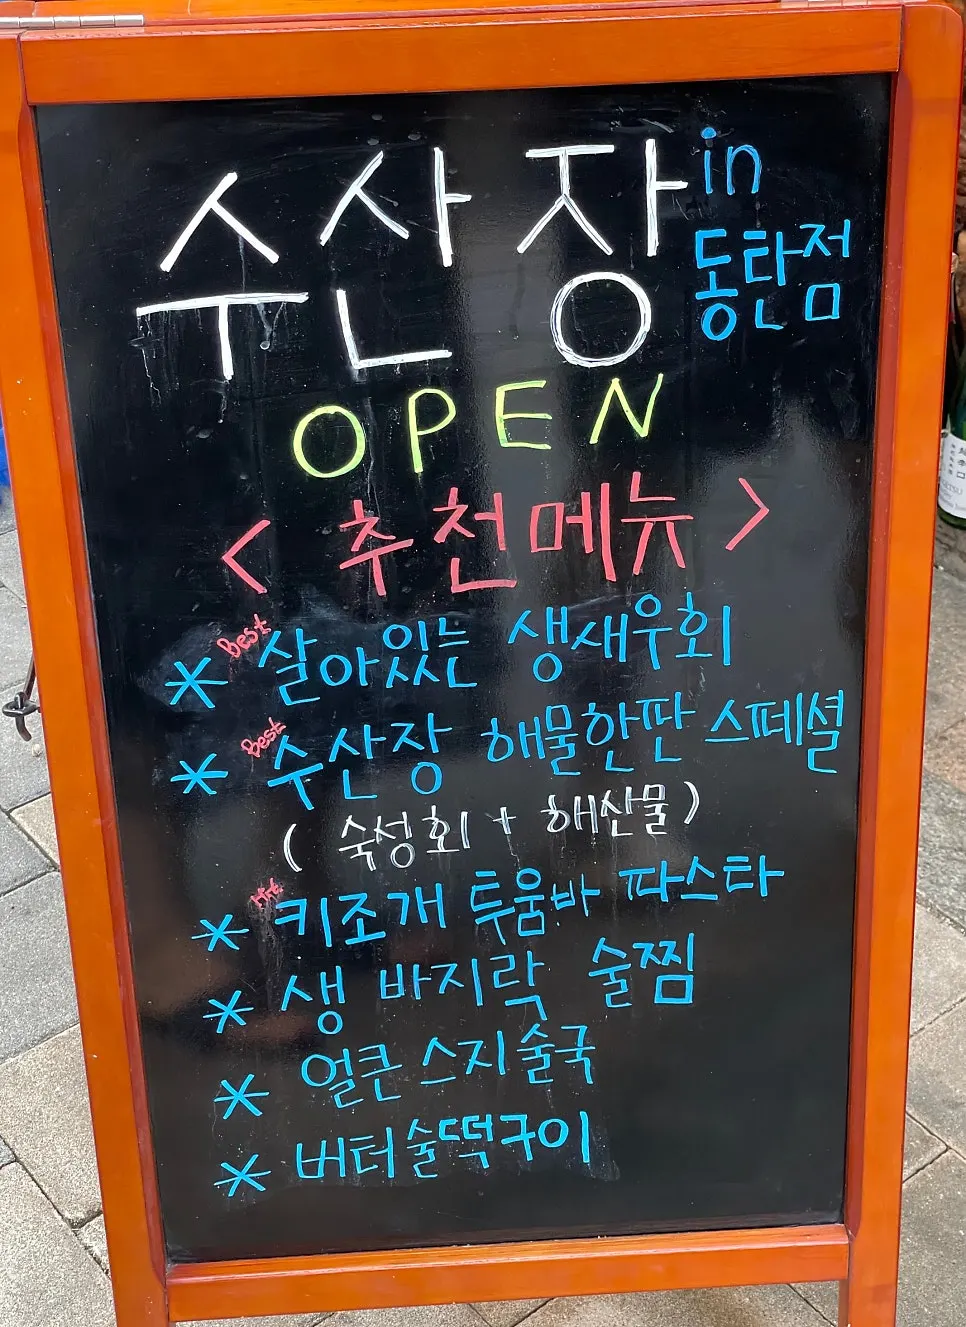 수산장 in
동탄점
OPEN
< 추천메뉴 >
* Best 살아있는 생새우회
* Best 수산장 해물한판 스페셜
( 숙성회 + 해산물 )
* 키조개 투움바 파스타
* 생 바지락 술찜
* 얼큰 스지술국
* 버터술떡구이